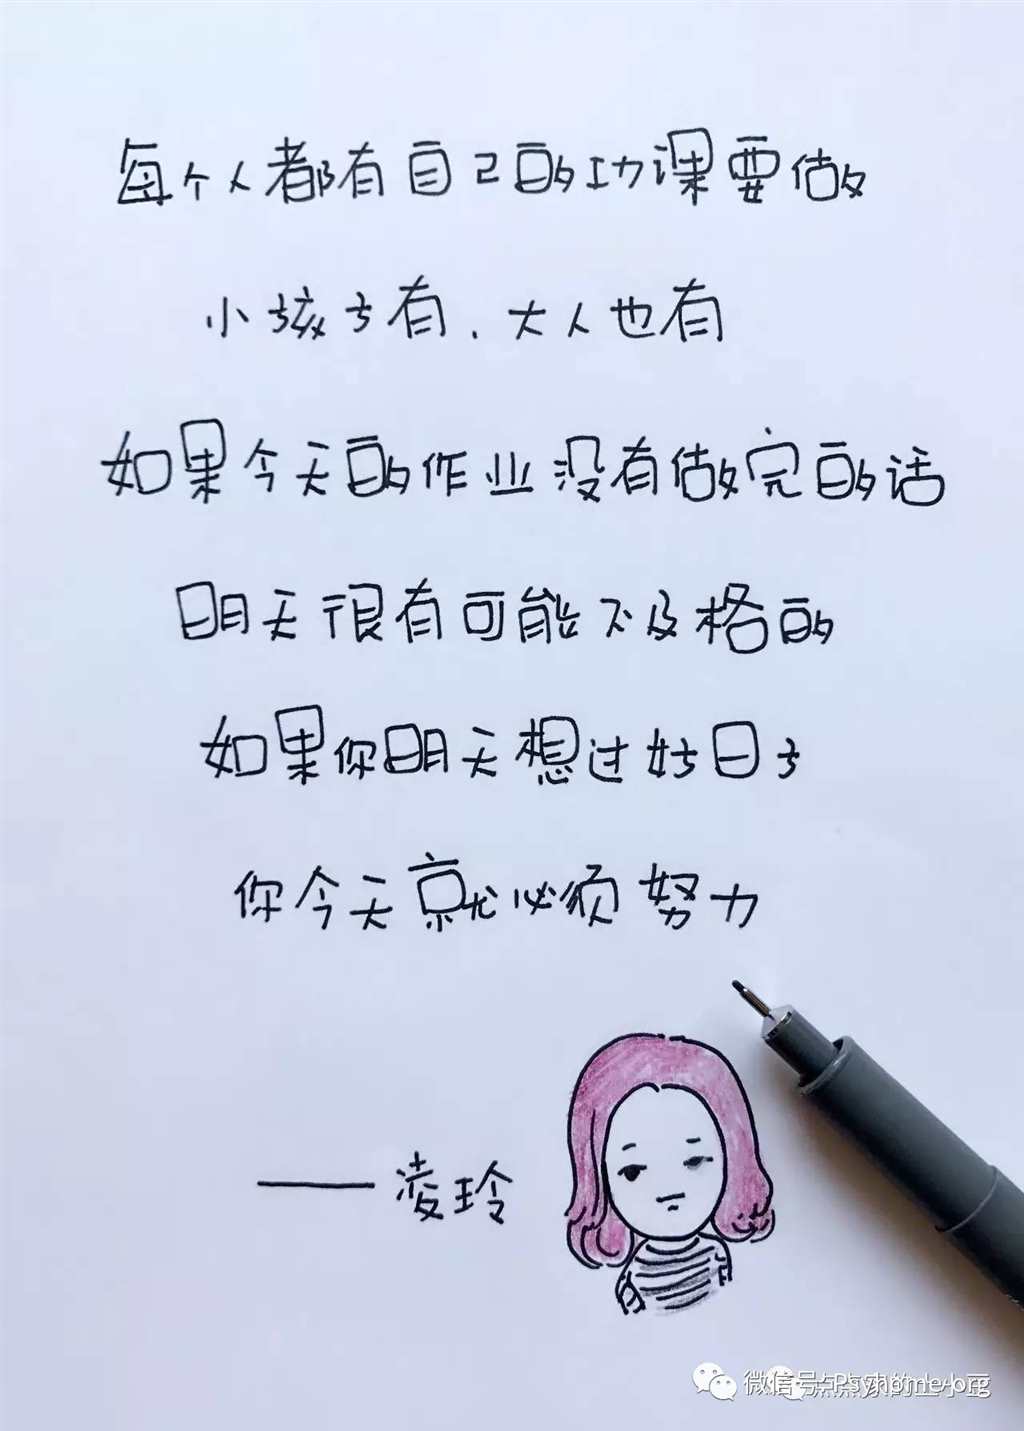 每个人都有自己的功课要做
小孩子有、大人也有
如果今天的作业没有做完的话
明天很有可能不及格的
如果你明天想过好日子
你今天就必须努力
——凌玲
微信号: Psyhome-org